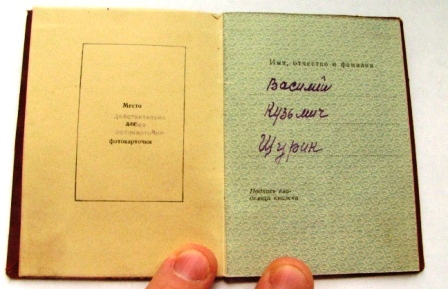 Место
действительно
для
без
фотокарточки
фотокарточки
Имя, отчество и фамилия
Василий
Кузьмич
Щурин
Подпись вла-
дельца книжки